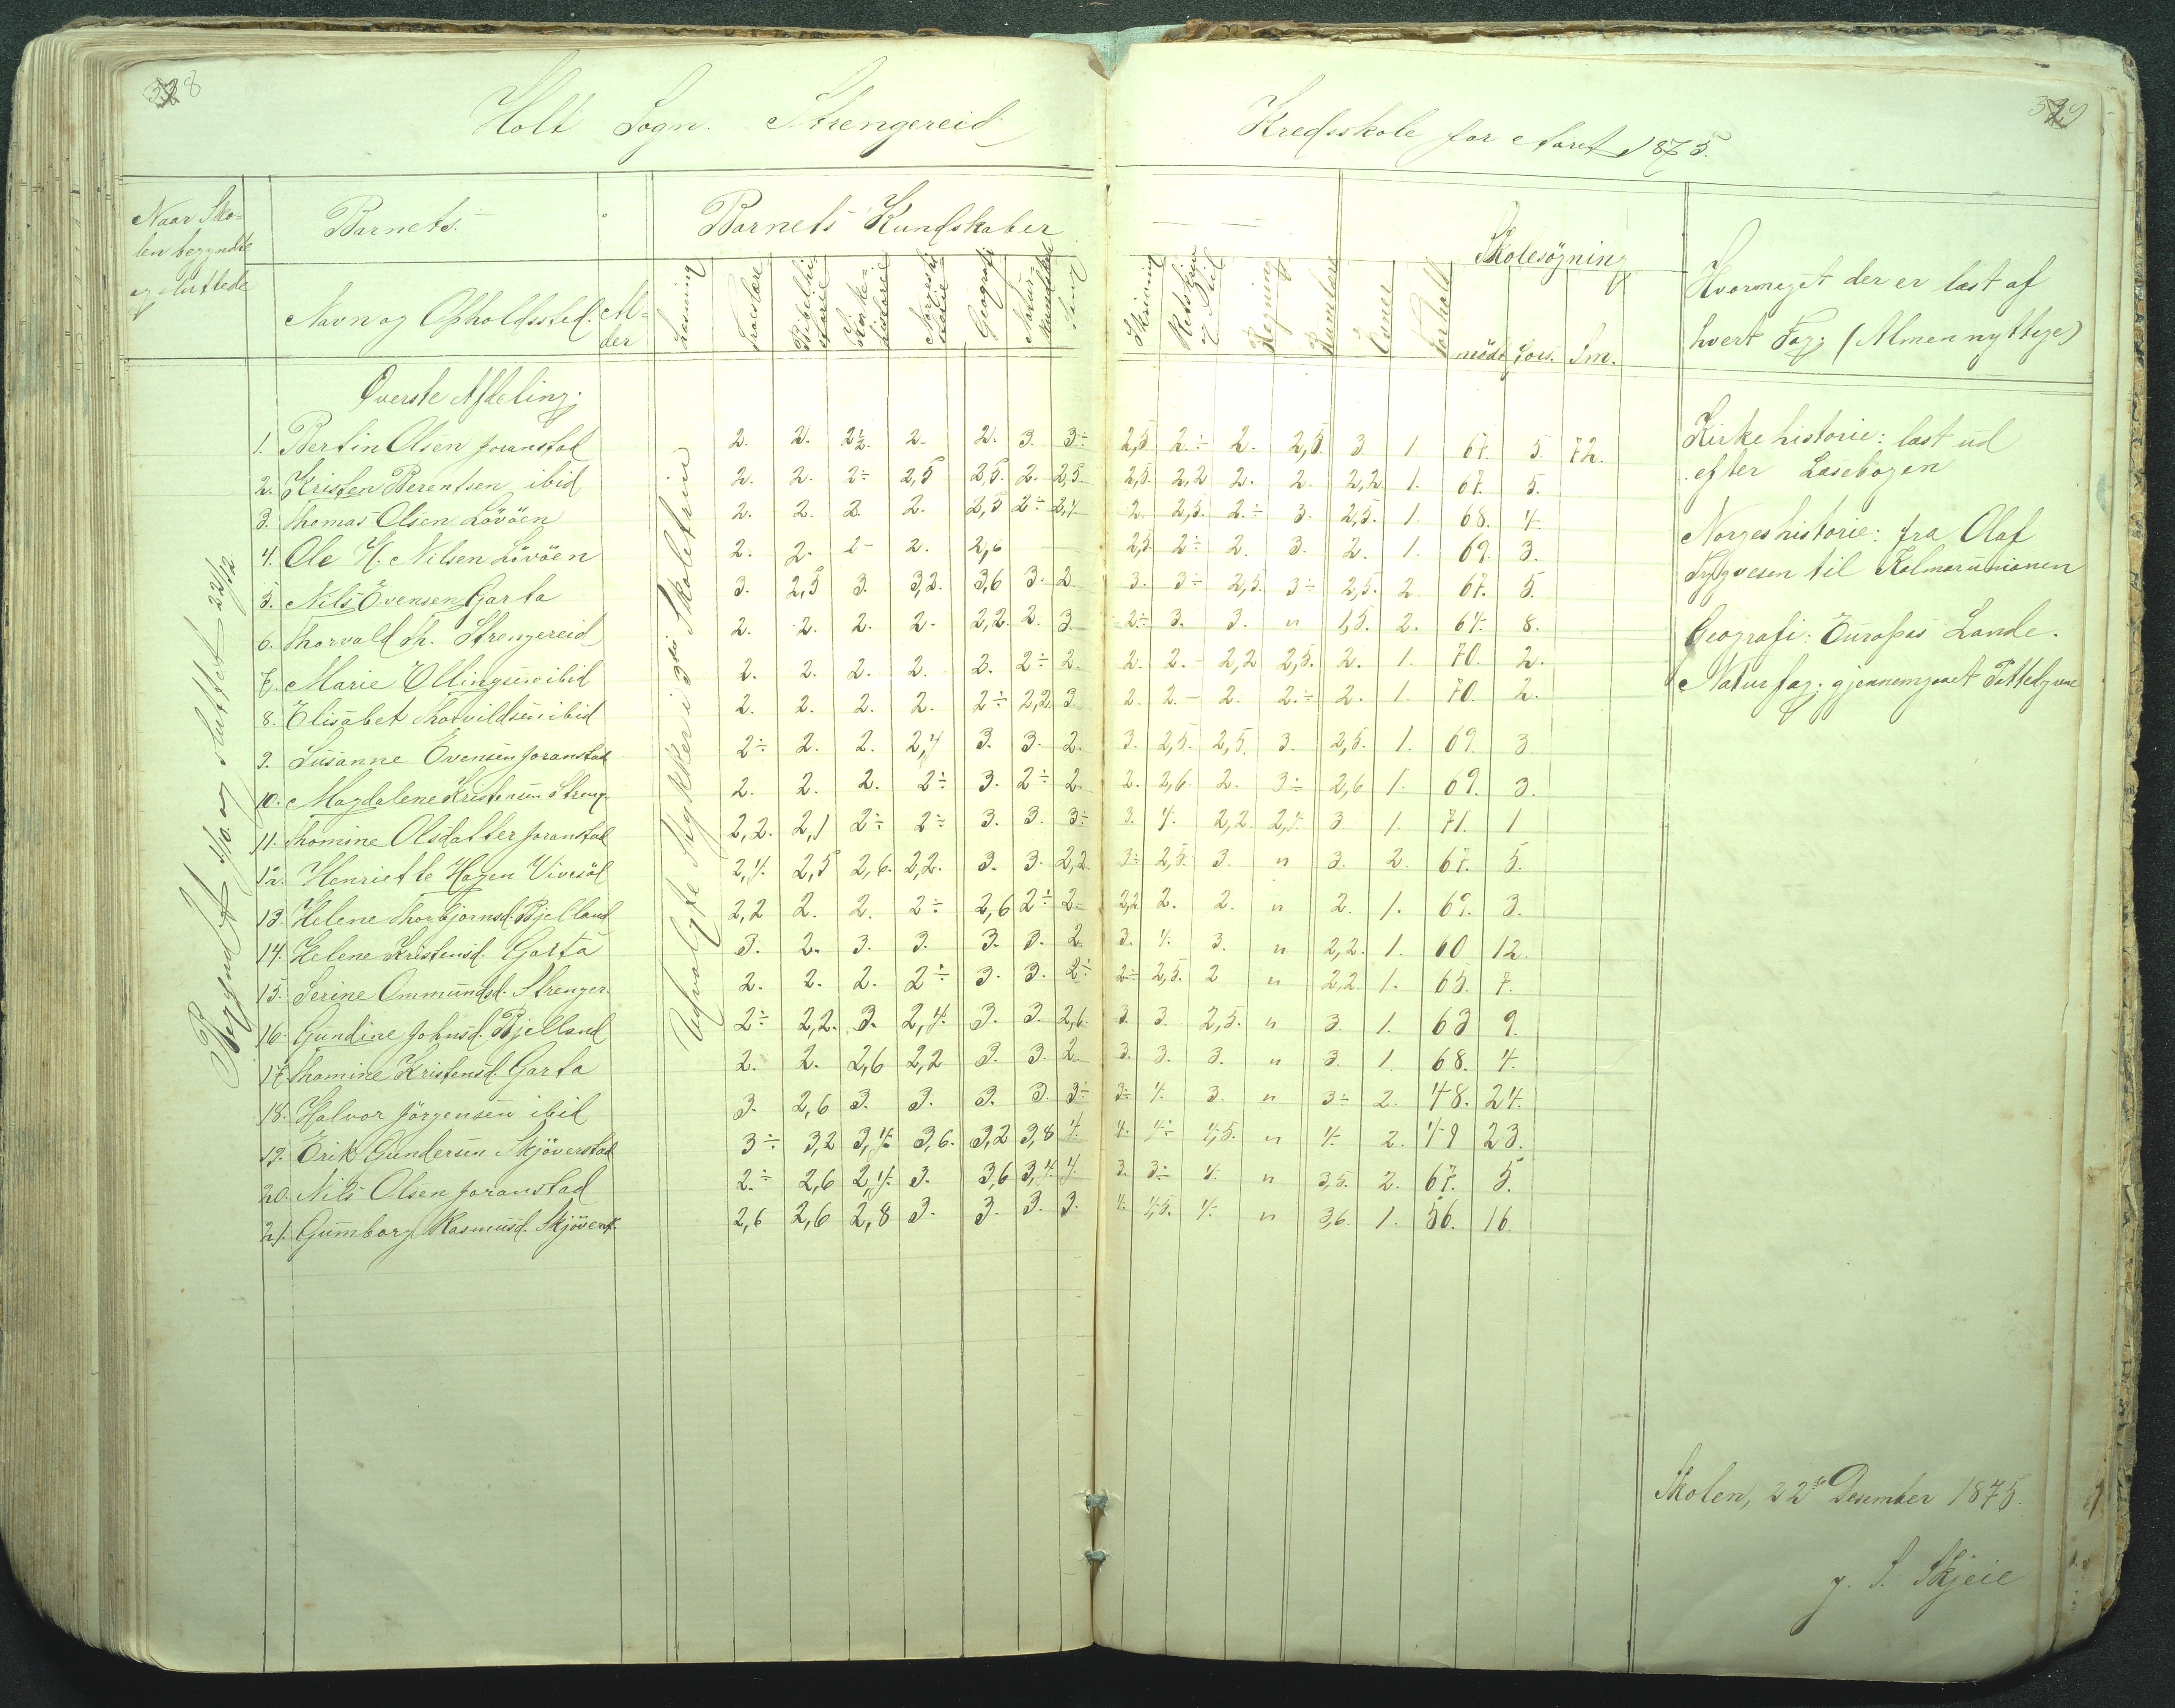 338
Holt Sogn. Strengereid
Naar Sko-
len begyndte
og sluttede
Barnets.
Navn og Opholdssted.
Al-
der
Barnets Kundskaber
Læsning
Troeslære
Bibelhi-
storie
Kirke-
historie
Norgeshi-
storie
Geografi
Natur-
kundskab
Sang
Begyndt 4/10 og sluttet 22/12.
Udvalgte Stykker i 3die Skoletrin
Øverste Afdeling.
1. Bertin Olsen Joranstad 2. 2. 2½. 2. 2. 3. 3÷
2. Kristen Berentsen ibid 2. 2. 2÷ 2,5 2,5. 2. 2,5
3. Thomas Olsen Lövöen 2. 2. 2. 2. 2,5 2÷ 2,4
4. Ole H. Nilsen Lövöen 2. 2. 2- 2. 2,6
5. Nils Evensen Garta 3. 2,5 3. 3,2. 3,6 3. 2
6. Thorvald Th. Strengereid 2. 2. 2. 2. 2,2. 2. 3
7. Marie Ellingsen ibid 2. 2. 2. 2. 2. 2÷ 2.
8. Elisabet Thorvildsen ibid 2. 2. 2. 2. 2÷ 2,2. 3
9. Susanne Evensen Joranstad 2÷ 2. 2. 2,4 3. 3. 2.
10. Magdalene Kristensen Streng. 2. 2. 2. 2÷ 3. 2÷ 2.
11. Thomine Olsdatter Joranstad 2,2. 2,1 2÷ 2÷ 3. 3. 3÷
12. Henriette Hagen Vivesöl 2,4. 2,5 2,6. 2,2. 3. 3. 2,2.
13. Helene Thorbjornsd. Bjelland 2,2 2. 2. 2÷ 2,6 2÷ 2.
14. Helene Kristensd. Garta 3. 2. 3. 3. 3. 3. 2
15. Serine Ommundsd. Strenger. 2. 2. 2. 2÷ 3. 3. 2÷
16. Gundine Johnsd. Bjelland 2÷ 2,2. 3. 2,4. 3. 3. 2,6.
17. Thomine Kristensd. Garta 2. 2. 2,6 2,2 3. 3. 2.
18. Halvor Jörgensen ibid 3. 2,6 3. 3. 3. 3. 3÷
19. Erik Gundersen Skjöverstad 3÷ 3,2 3,4. 3,6. 3,2 3,8 4.
20. Nils Olsen Joranstad 2.÷ 2,6 2,4. 3. 3,6 3,4. 4.
21. Gumborg Rasmusd. Skjöverst. 2,6 2,6 2,8 3. 3. 3. 3.
Kredsskole for Aaret 1875.
Skrivning
Retskriv.
og Stil
Regning
Evner
Forhold
Skolesøgning
mödt fors. Sm.
Hvormeget der er læst af
hvert Fag; (Almennyttige)
2,5 2.÷ 2. 2,5. 3 1. 67. 5. 72.
2,5. 2,2 2. 2. 2,2 1. 67. 5.
2. 2,5. 2.÷ 3. 2,5. 1. 68. 4.
2,5. 2÷ 2. 3. 2. 1. 69. 3.
3. 3÷ 2,5. 3÷ 2,5. 2. 67. 5.
2÷ 3. 3. " 1,5. 2. 64. 8.
2. 2.- 2,2 2,5. 2. 1. 70. 2.
2. 2.- 2. 2.÷ 2. 1. 70. 2.
3. 2,5. 2,5. 3. 2,5. 1. 69. 3
2. 2,6 2. 3÷ 2,6 1. 69. 3.
3. 4. 2,2. 2,4. 3 1. 71. 1
3÷ 2,5. 3. " 3. 2. 67. 5.
2,2. 2. 2. " 2. 1. 69. 3.
3. 4. 3. " 2,2. 1. 60 12.
2÷ 2,5. 2 " 2,2. 1. 65. 7.
3. 3. 2,5. " 3 1. 63 9.
3. 3. 3. " 3. 1. 68. 4.
3÷ 4. 3. " 3÷ 2. 48. 24.
4. 4÷ 4,5. " 4. 2. 49 23.
3. 3÷ 4. " 3,5. 2. 67. 5.
4. 4,5. 4. " 3,6. 1. 56. 16.
Kirkehistorie: læst ud
efter Læsebogen
Norgeshistorie: fra Olaf
Trygvesen til Kalmarunionen
Geografi: Europas Lande.
Naturfag: gjennemgaaet Pattedyrene
Skolen, 22de Desember 1875.
J. S. Skjeie